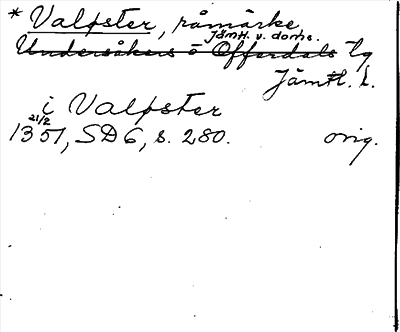 * Valpster, råmärke
Jämtl. v. doms.
Undersåkers o Offerdals tg
Jämtl. l.
i Valpster
21/2
1351, SD 6, s. 280. orig.